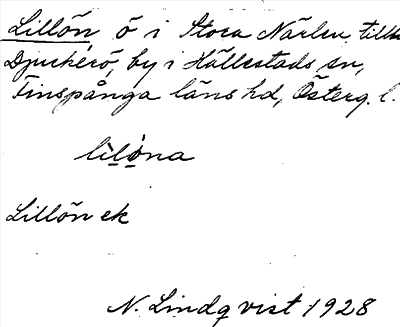 Lillön, ö i Stora Närlen, tillh.
Djurkärö, by i Hällestads sn,
Finspånga läns hd, Österg. l.
lìlö́na
Lillön ek
N. Lindqvist 1928